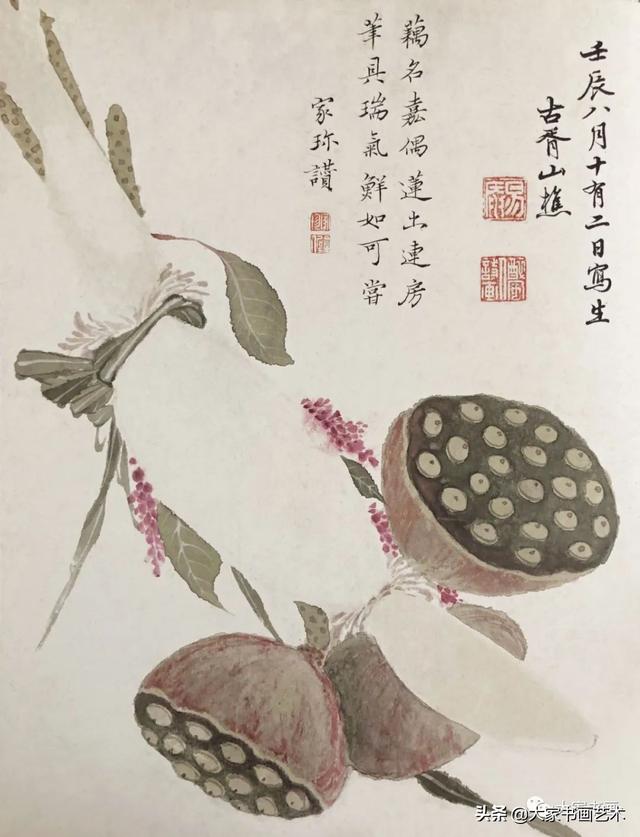 壬辰八月十有二日寫生
古胥山樵
藕名嘉偶蓮出連房
筆具瑞氣鮮如可嘗
家珎讚
头条 @大家书画艺术